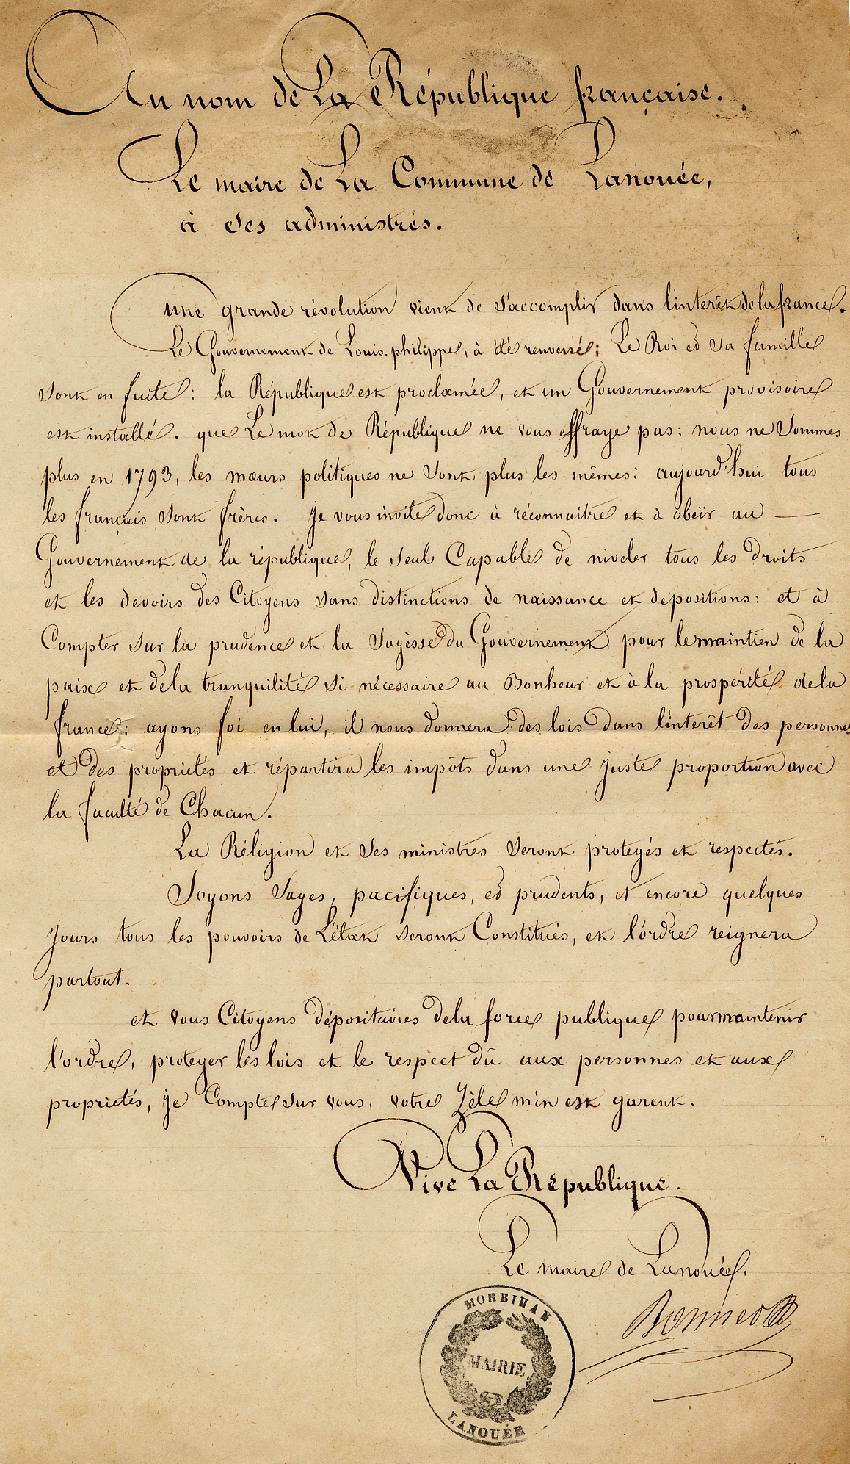 Au nom de La République française.
Le maire de La Commune de Lanouée,
à ses administrés.
une grande révolution vient de s'accomplir dans l'interêt de la france.
Le Gouvernement de Louis-philippe, à été renversé; Le Roi et sa famille
sont en fuite: la République est proclamée, et un Gouvernement provisoire
est installé. que Le mot de République ne vous effraye pas: nous ne sommes
plus en 1793, les mœurs politiques ne sont plus les mêmes: aujourd'hui tous
les français sont frères. Je vous invite donc à réconnaitre et à obeïr au —
Gouvernement de la république, le seul Capable de niveler tous les droits
et les devoirs des Citoyens sans distinctions de naissance et depositions: et à
Compter sur la prudence et la sagèsse du Gouvernement pour le maintien de la
paix et de la tranquilité si nécessaire au Bonheur et à la prospérité de la
france; ayons foi en lui, il nous donnera des lois dans l'interêt des personnes
et des propriétés et répartira les impôts dans une juste proportion avec
la faculté de Chacun.
La Réligion et ses ministres seront protegés et respectés.
Soyons sages, pacifiques, et prudents, et encore quelques
Jours tous les pouvoirs de L'état seront Constitués, et l'ordre reignera
partout.
et vous Citoyens dépositaires de la force publique pour maintenir
l'ordre, proteger les lois et le respect dû aux personnes et aux
propriétés, je Compte sur vous, votre Zèle m'en est garent.
Vive La République.
Le maire de Lanouée.
MORBIHAN
MAIRIE
LANOUÉE